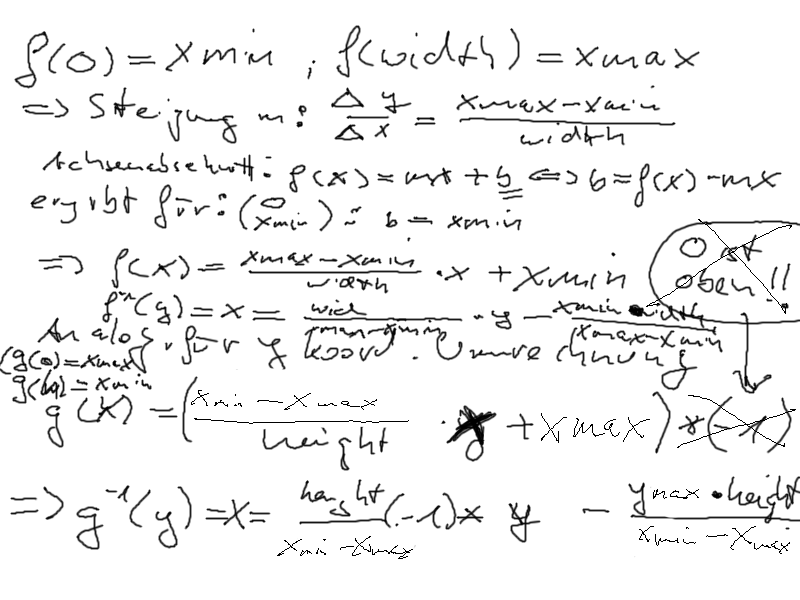 f(0) = xmin ; f(width) = xmax
=> Steigung m: Δy/Δx = (xmax-xmin)/width
Achsenabschnitt: f(x) = mx + b <=> b = f(x) - mx
ergibt für: (0 xmin): b = xmin
=> f(x) = (xmax-xmin)/width · x + xmin
0 ist oben!!
f⁻¹(y) = x = /(xmax-xmin) · y - (xmin·width)/(xmax-xmin)
Analog für y Koord. Umrechnung
(g(0) = xmax
g() = xmin
g(x) = ((xmin-xmax)/height · y + xmax) * (-1)
=> g⁻¹(y) = x = height/(xmin-xmax) (-1) * y - (ymax·height)/(xmin-xmax)